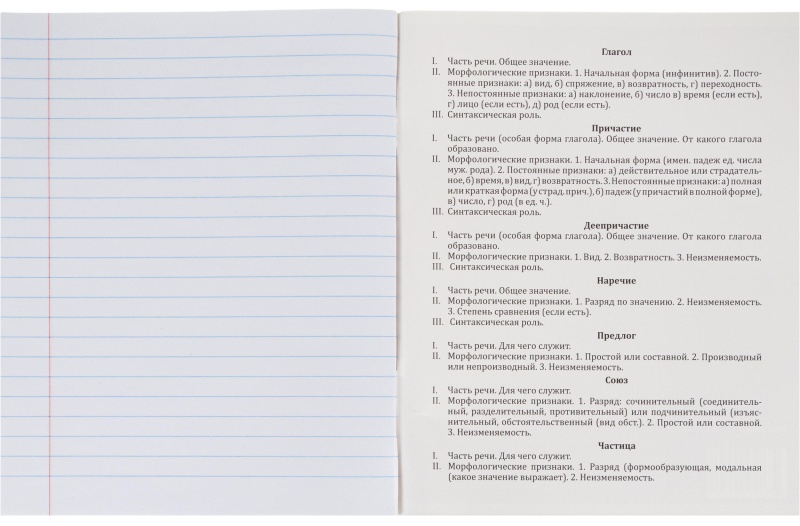 Глагол
I. Часть речи. Общее значение.
II. Морфологические признаки. 1. Начальная форма (инфинитив). 2. Посто-
янные признаки: а) вид, б) спряжение, в) возвратность, г) переходность.
3. Непостоянные признаки: а) наклонение, б) число в) время (если есть),
г) лицо (если есть), д) род (если есть).
III. Синтаксическая роль.
Причастие
I. Часть речи (особая форма глагола). Общее значение. От какого глагола
образовано.
II. Морфологические признаки. 1. Начальная форма (имен. падеж ед. числа
муж. рода). 2. Постоянные признаки: а) действительное или страдатель-
ное, б) время, в) вид, г) возвратность. 3. Непостоянные признаки: а) полная
или краткая форма (у страд. прич.), б) падеж (у причастий в полной форме),
в) число, г) род (в ед. ч.).
III. Синтаксическая роль.
Деепричастие
I. Часть речи (особая форма глагола). Общее значение. От какого глагола
образовано.
II. Морфологические признаки. 1. Вид. 2. Возвратность. 3. Неизменяемость.
III. Синтаксическая роль.
Наречие
I. Часть речи. Общее значение.
II. Морфологические признаки. 1. Разряд по значению. 2. Неизменяемость.
3. Степень сравнения (если есть).
III. Синтаксическая роль.
Предлог
I. Часть речи. Для чего служит.
II. Морфологические признаки. 1. Простой или составной. 2. Производный
или непроизводный. 3. Неизменяемость.
Союз
I. Часть речи. Для чего служит.
II. Морфологические признаки. 1. Разряд: сочинительный (соединитель-
ный, разделительный, противительный) или подчинительный (изъяс-
нительный, обстоятельственный (вид обст.). 2. Простой или составной.
3. Неизменяемость.
Частица
I. Часть речи. Для чего служит.
II. Морфологические признаки. 1. Разряд (формообразующая, модальная
(какое значение выражает). 2. Неизменяемость.